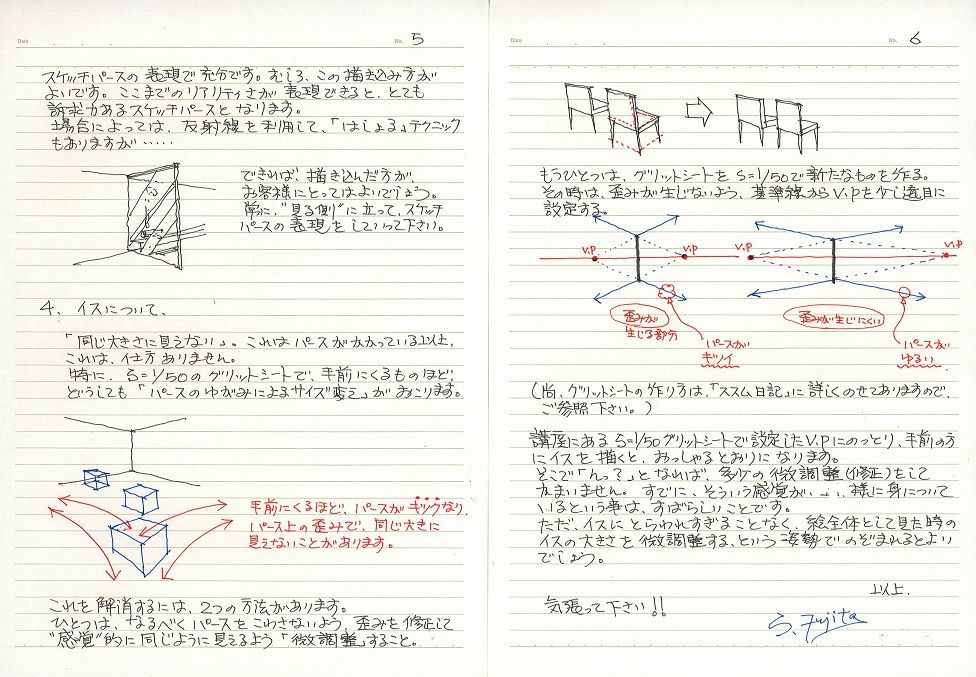 Date
No. 5
スケッチパースの表現で充分です。むしろ、この描き込み方が
よいです。ここまでのリアリティさが表現できると、とても
訴求力あるスケッチパースとなります。
場合によっては、反射線を利用して、「はしょる」テクニック
もありますが‥‥‥
できれば、描き込んだ方が、
お客様にとってはよいでしょう。
常に、"見る側"に立って、スケッチ
パースの表現をしていって下さい。
4. イスについて、
「同じ大きさに見えない」。これはパースがかかっている以上,
これは、仕方ありません。
特に、S=1/50のグリットシートで、手前にくるものほど、
どうしても「パースのゆがみによるサイズ変え」がおこります。
手前にくるほど、パースがキツクなり、
パース上の歪みで、同じ大きに
見えないことがあります。
これを解消するには、2つの方法があります。
ひとつは、なるべくパースをこわさないよう、歪みを修正して
"感覚"的に同じように見えるよう「微調整」すること。
Date
No. 6
もうひとつは、グリットシートをS=1/50で新たなものを作る。
その時は、歪みが生じないよう、基準線からV.Pを少し遠目に
設定する。
V.P
V.P
V.P
V.P
歪みが
生じる部分
パースが
キツイ
歪みが生じにくい
パースが
ゆるい
(尚、グリットシートの作り方は、「ススム日記」に詳しくのせてありますので、
ご参照下さい。)
講座にあるS=1/50グリットシートで設定したV.Pにのっとり、手前の方
にイスを描くと、おっしゃるとおりになります。
そこで「んっ?」となれば、多少の微調整(修正)をして
かまいません。すでに、そういう感覚が、、、様に身について
いるという事は、すばらしいことです。
ただ、イスにとらわれすぎることなく、絵全体として見た時の
イスの大きさを微調整する、という姿勢でのぞまれるとよい
でしょう。
以上.
気張って下さい!!
S. Fujita